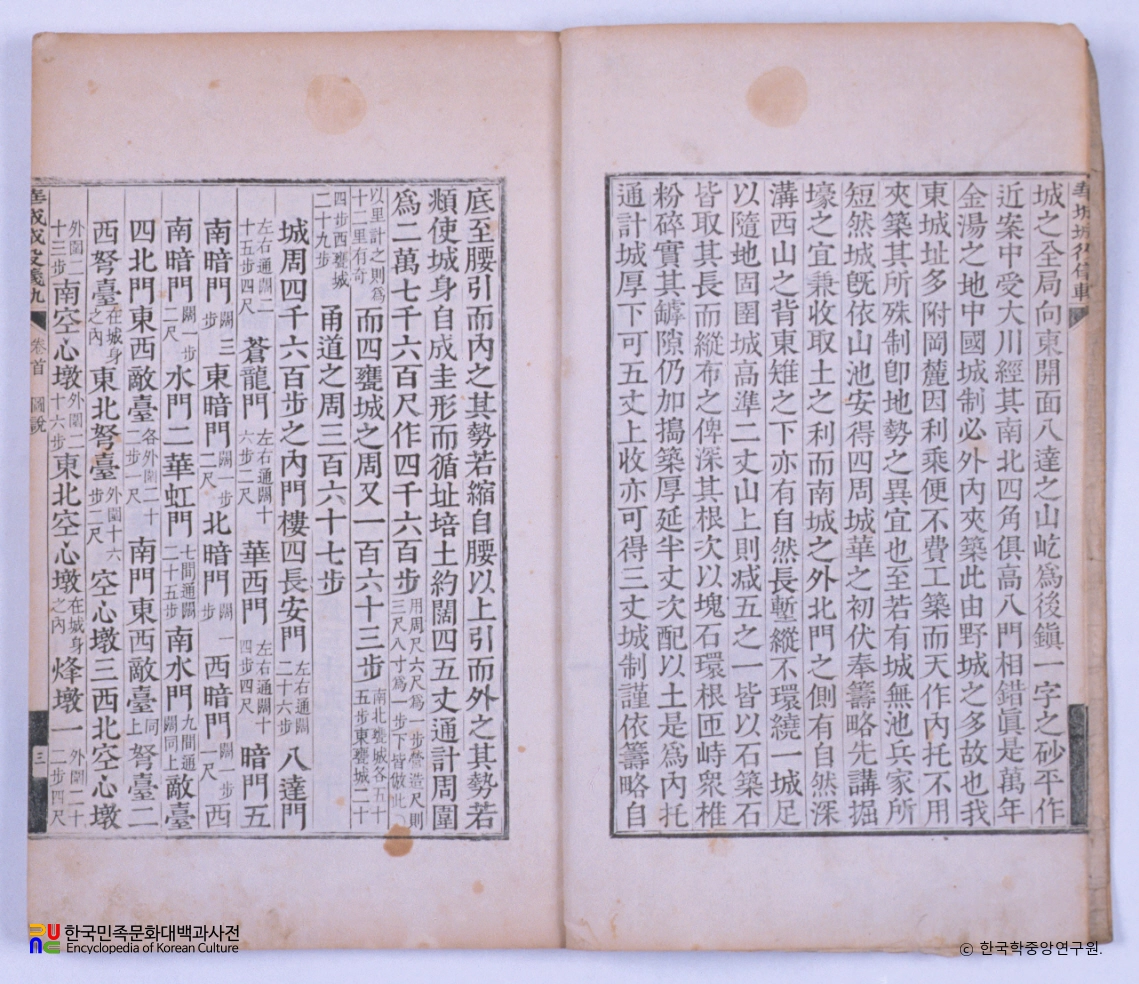 城之全局向東開面八達之山屹爲後鎭一字之砂平作
近案中受大川經其南北四角俱高八門相錯眞是萬年
金湯之地中國城制必外內夾築此由野城之多故也我
東城址多附岡麓因利乘便不費工築而天作內托不用
夾築其所殊制卽地勢之異宜也至若有城無池兵家所
短然城旣依山池安得四周城華之初伏奉籌略先講掘
壕之宜兼收取土之利而南城之外北門之側有自然深
溝西山之背東雉之下亦有自然長塹縱不環繞一城足
以隨地固圉城高準二丈山上則減五之一皆以石築石
皆取其長而縱布之俾深其根次以塊石環根匝峙衆椎
粉碎實其罅隙仍加搗築厚延半丈次配以土是爲內托
通計城厚下可五丈上收亦可得三丈城制謹依籌略自
底至腰引而內之其勢若縮自腰以上引而外之其勢若
頫使城身自成圭形而循址培土約闊四五丈通計周圍
爲二萬七千六百尺作四千六百步用周尺六尺爲一步營造尺則三尺八寸爲一步下皆倣此
以里計之則爲十二里有奇而四甕城之周又一百六十三步南北甕城各五十五步東甕城二十
四步西甕城二十九步甬道之周三百六十七步
城周四千六百步之內門樓四長安門左右通闊二十六步八達門
左右通闊二十五步四尺蒼龍門左右通闊十六步二尺華西門左右通闊十四步四尺暗門五
南暗門闊三步東暗門闊一步二尺北暗門闊一步西暗門闊一步一尺西
南暗門闊一步二尺水門二華虹門七間通闊二十五步南水門九間通闊同上敵臺
四北門東西敵臺各外圍二十二步一尺南門東西敵臺同上弩臺二
西弩臺在城身之內東北弩臺外圍十六步二尺空心墩三西北空心墩
外圍二十三步南空心墩外圍二十六步東北空心墩在城身之內烽墩一外圍二十二步四尺
華城城役儀軌
卷首
圖說
三
한국민족문화대백과사전
Encyclopedia of Korean Culture
© 한국학중앙연구원.